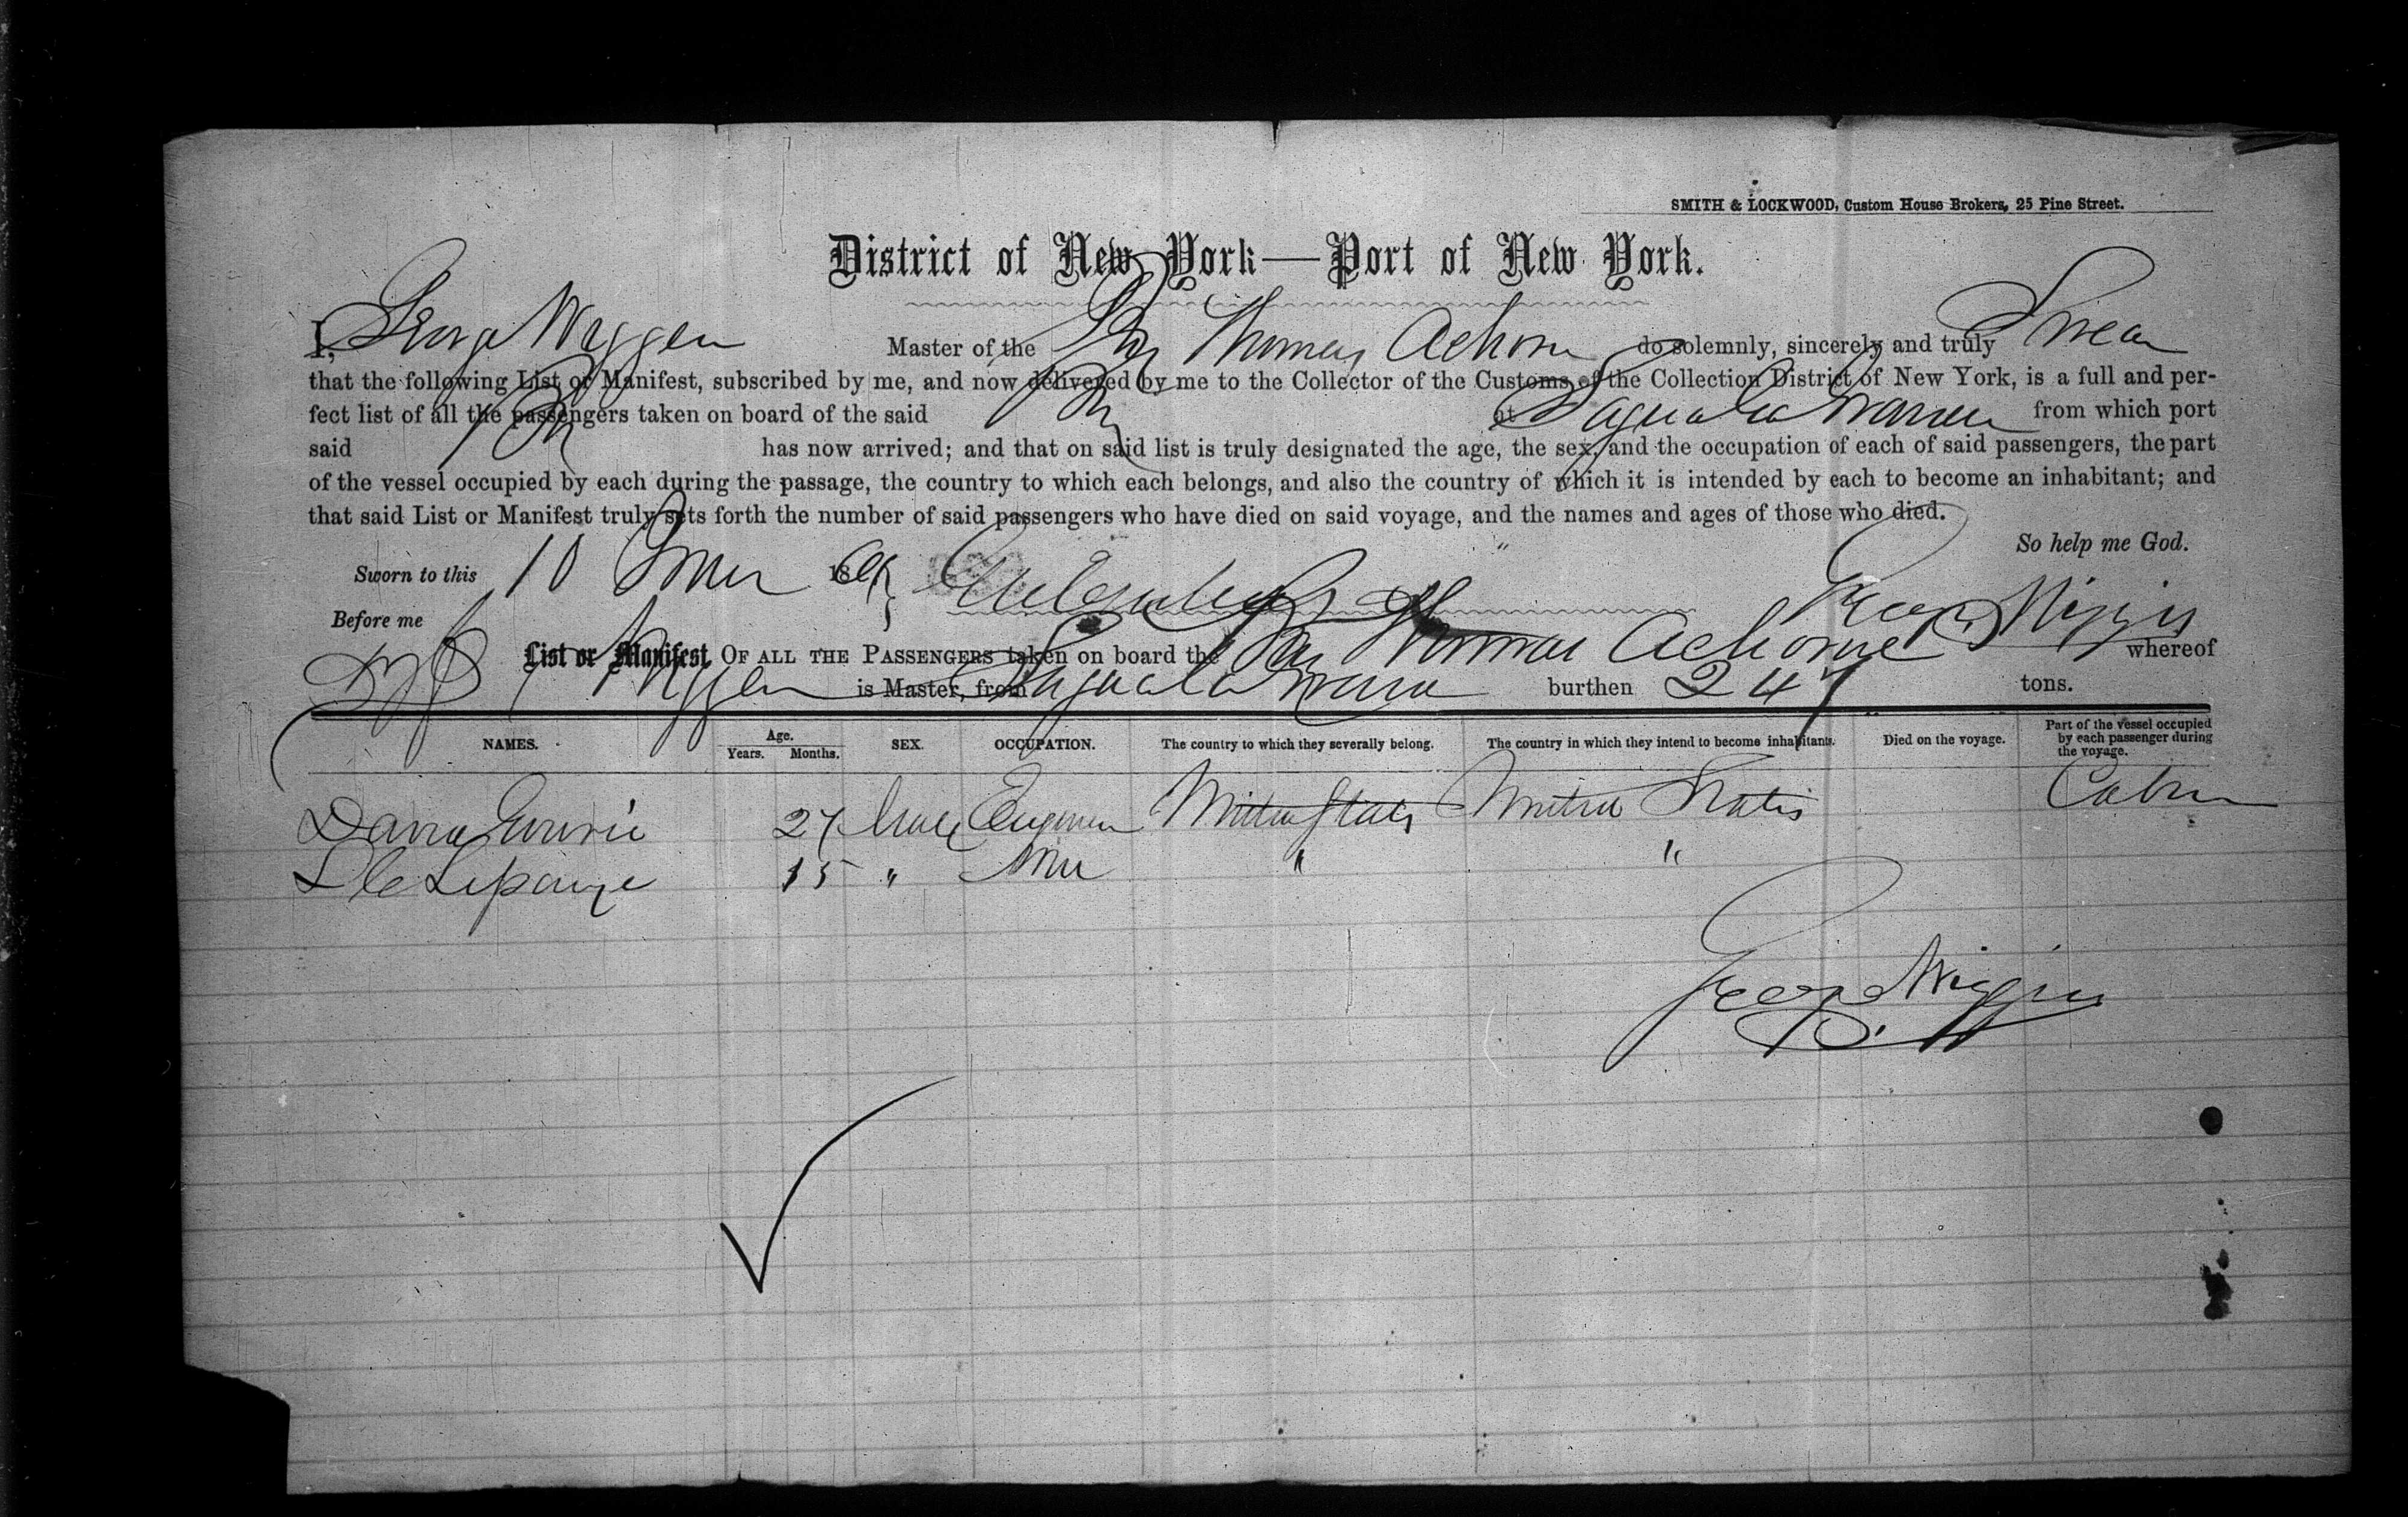 SMITH & LOCKWOOD, Custom House Brokers, 25 Pine Street.
District of New York—Port of New York.
I, George Wiggen Master of the Thomas Achorn do solemnly, sincerely and truly Swear
that the following List or Manifest, subscribed by me, and now delivered by me to the Collector of the Customs of the Collection District of New York, is a full and per-
fect list of all the passengers taken on board of the said at Sagua La Grande from which port
said has now arrived; and that on said list is truly designated the age, the sex, and the occupation of each of said passengers, the part
of the vessel occupied by each during the passage, the country to which each belongs, and also the country of which it is intended by each to become an inhabitant; and
that said List or Manifest truly sets forth the number of said passengers who have died on said voyage, and the names and ages of those who died.
So help me God.
Sworn to this 10 June 186
Before me George Wiggin
List or Manifest OF ALL THE PASSENGERS taken on board the Thomas Achorne whereof
Wiggen is Master, from Sagua La Grande burthen 247 tons.
NAMES. Age. Years. Months. SEX. OCCUPATION. The country to which they severally belong. The country in which they intend to become inhabitants. Died on the voyage. Part of the vessel occupied by each passenger during the voyage.
David 27 Male Engineer United States United States Cabin
15 " " "
George Wiggin